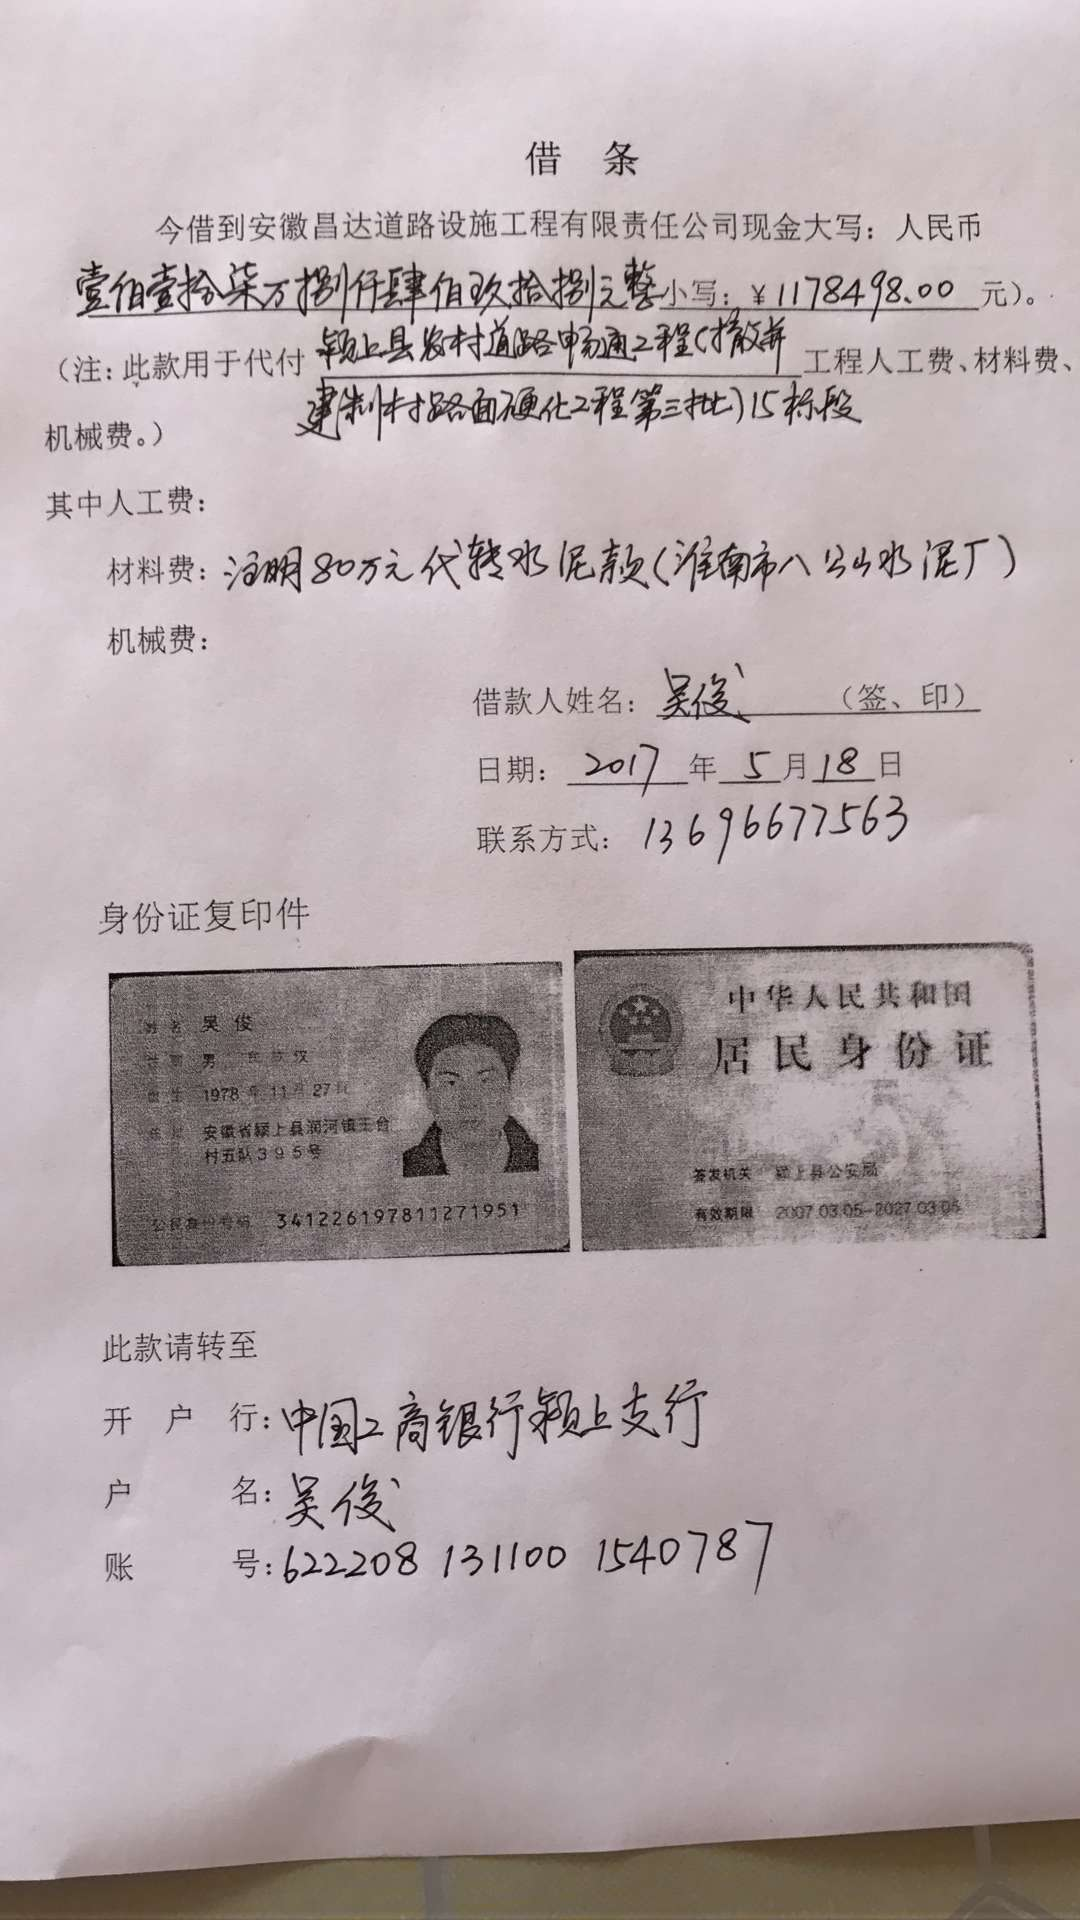 借 条
今借到安徽昌达道路设施工程有限责任公司现金大写：人民币
壹佰壹拾柒万捌仟肆佰玖拾捌元整小写：￥1178498.00 元）。
（注：此款用于代付 颍上县农村道路畅通工程（撤并 工程人工费、材料费、
建制村路面硬化工程第三批）15标段
机械费。）
其中人工费：
材料费：注明80万元代转水泥款（淮南市八公山水泥厂）
机械费：
借款人姓名：吴俊 （签、印）
日期：2017年5月18日
联系方式：13696677563
身份证复印件
姓名 吴俊
性别 男 民族 汉
出生 1978年11月27日
住址 安徽省颍上县润河镇王台
村五队395号
公民身份号码 341226197811271951
中华人民共和国
居民身份证
签发机关 颍上县公安局
有效期限 2007.03.05-2027.03.05
此款请转至
开户行：中国工商银行颍上支行
户名：吴俊
账号：622208 131100 1540787